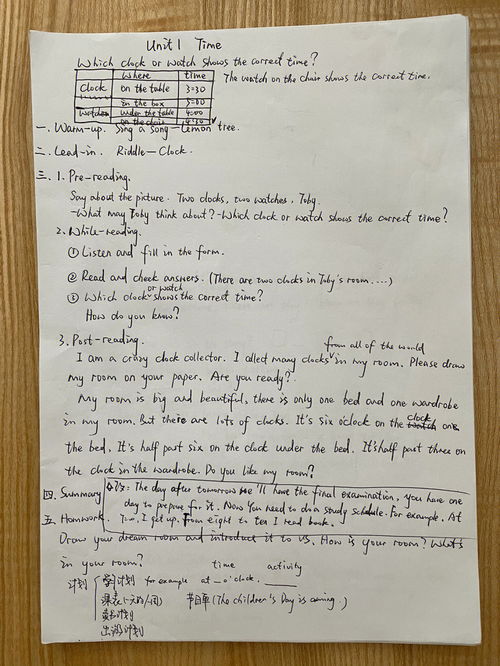 Unit 1 Time
Which clock or watch shows the correct time?
where time
Clock on the table 3:30
in the box 5:00
watches under the table 4:00
on the chair 4:30
The watch on the chair shows the correct time.
一. Warm-up. Sing a song—Lemon tree.
二. Lead-in. Riddle—Clock.
三. 1. Pre-reading.
Say about the picture. Two clocks, two watches, Toby.
-What may Toby think about? -Which clock or watch shows the correct time?
2. While-reading.
① Listen and fill in the form.
② Read and check answers. (There are two clocks in Toby's room....)
③ Which clock or watch shows the correct time?
How do you know?
3. Post-reading.
I am a crazy clock collector. I collect many clocks from all of the world in my room. Please draw
my room on your paper. Are you ready?
My room is big and beautiful, there is only one bed and one wardrobe
in my room. But there are lots of clocks. It's six o'clock on the clock on
the bed. It's half part six on the clock under the bed. It's half part three on
the clock in the wardrobe. Do you like my room?
四. Summary
The day after tomorrow we'll have the final examination, you have one
day to prepare for it. Now you need to do a study schedule. For example. At
五. Homework.
I get up. From eight to ten I read book.
Draw your dream room and introduce it to us. How is your room? What's
in your room?
time activity
计划 学习计划 for example at _ o'clock. ____
课表(一天的/一周) 节目单 (The children's Day is coming.)
出游计划